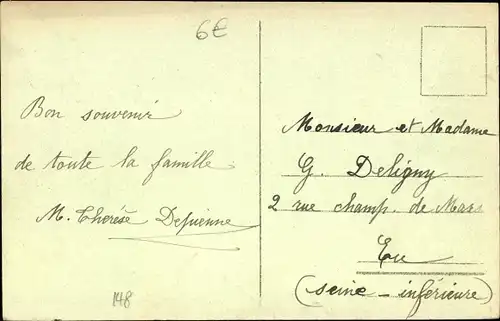 6€
Bon souvenir
de toute la famille
M. Thérèse Depienne
148
Monsieur et Madame
G. Deligny
2 rue champ. de Mars
Eu
(seine - inférieure)